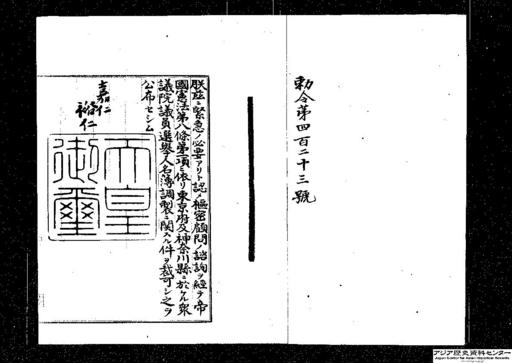 勅令第四百二十三號
朕茲ニ緊急ノ必要アリト認メ樞密顧問ノ諮詢ヲ經テ帝
國憲法第八條第一項ニ依リ東京府及神奈川縣ニ於ケル衆
議院議員選擧人名簿調製ニ關スル件ヲ裁可シ之ヲ
公布セシム
嘉仁
裕仁
天皇
御璽
アジア歴史資料センター
Japan Center for Asian Historical Records